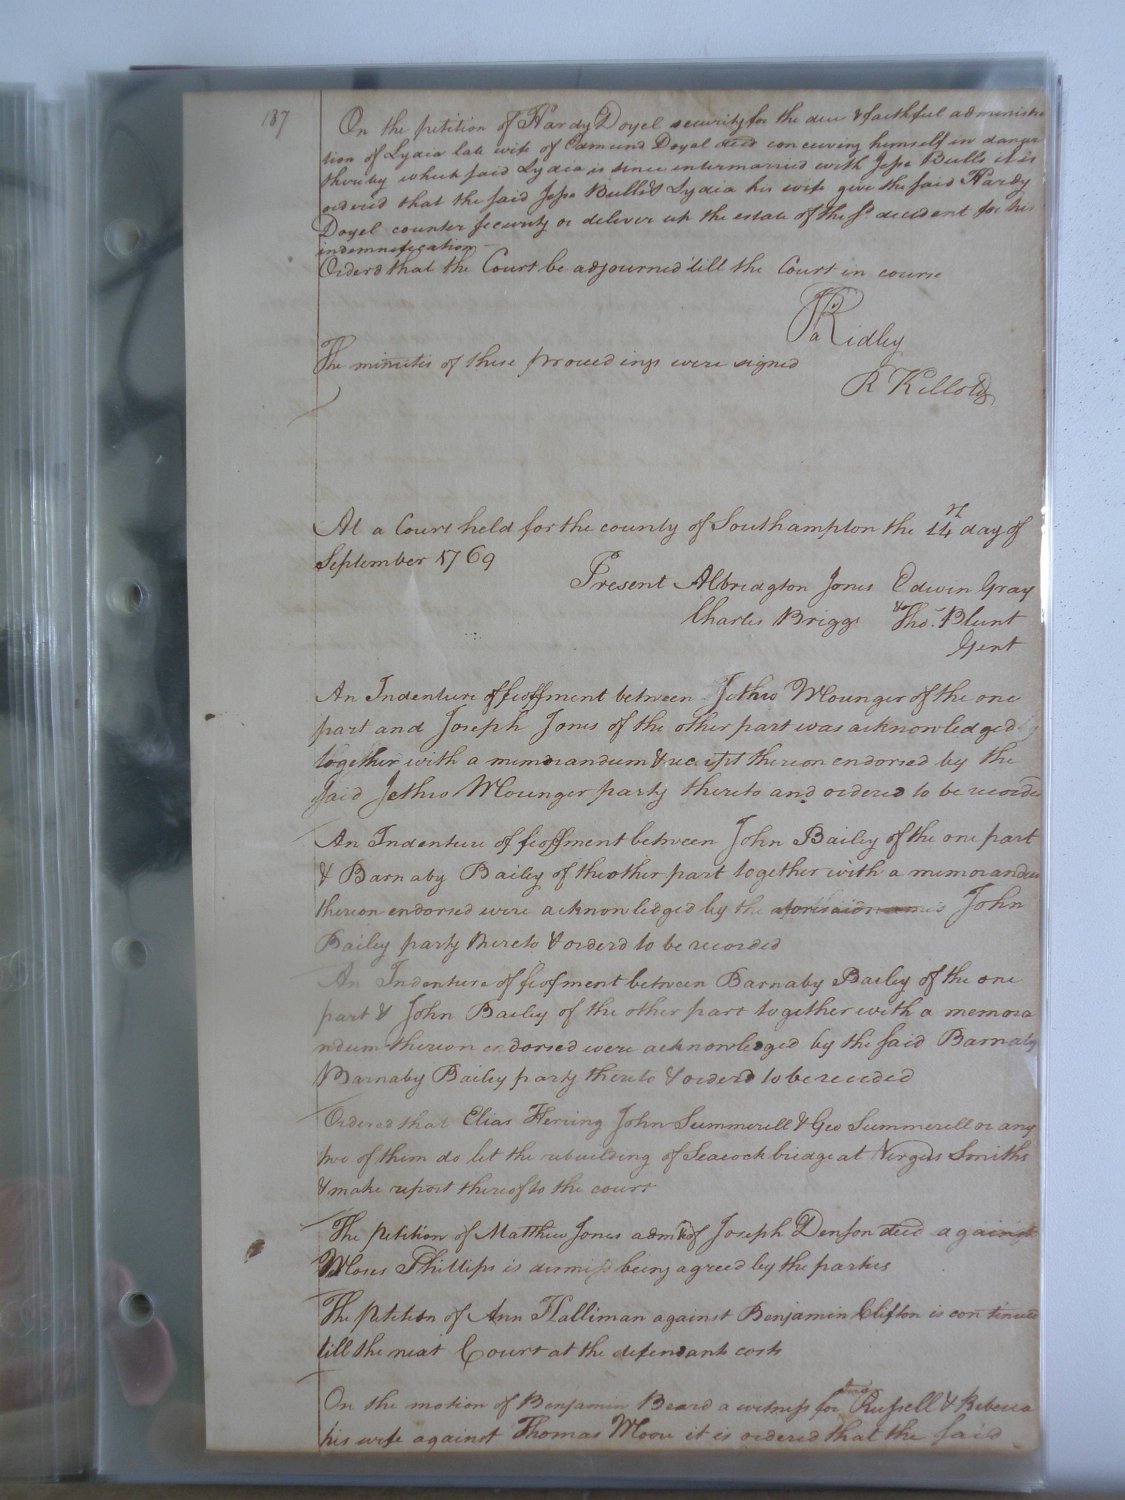 187
On the petition of Hardy Doyel security for the due & faithful administra
tion of Lydia late wife of Edmund Doyel decd conceiving himself in danger
thereby which said Lydia is since intermarried with Jesse Bulls it is
ordered that the said Jesse Bulls & Lydia his wife give the said Hardy
Doyel counter security or deliver up the estate of the sd decedent for his
indemnification
Orderd that the Court be adjourned till the Court in course
Ridley
The minutes of these proceedings were signed
R Kello
At a Court held for the county of Southampton the 14 day of
September 1769
Present Albridgton Jones Edwin Gray
Charles Briggs & Tho. Blunt
Gent
An Indenture of feoffment between Jethro Mounger of the one
part and Joseph Jones of the other part was acknowledged
together with a memorandum & receipt thereon endorsed by the
said Jethro Mounger party thereto and ordered to be recorded
An Indenture of feoffment between John Bailey of the one part
& Barnaby Bailey of the other part together with a memorandum
thereon endorsed were acknowledged by the aforesaid John
Bailey party thereto & orderd to be recorded
An Indenture of feofment between Barnaby Bailey of the one
part & John Bailey of the other part together with a memora
ndum thereon endorsed were acknowledged by the said Barnaby
Barnaby Bailey party thereto & orderd to be recorded
Ordered that Elias Herring John Summerell & Geo Summerell or any
two of them do let the rebuilding of Seacock bridge at Virgus Smiths
& make report thereof to the court
The petition of Matthew Jones admr of Joseph Denson decd against
Moses Phillips is dismiss being agreed by the parties
The Petition of Ann Halliman against Benjamin Clifton is continued
till the next Court at the defendants costs
On the motion of Benjamin Beard a witness for Russell & Rebecca
his wife against Thomas Moore it is ordered that the said